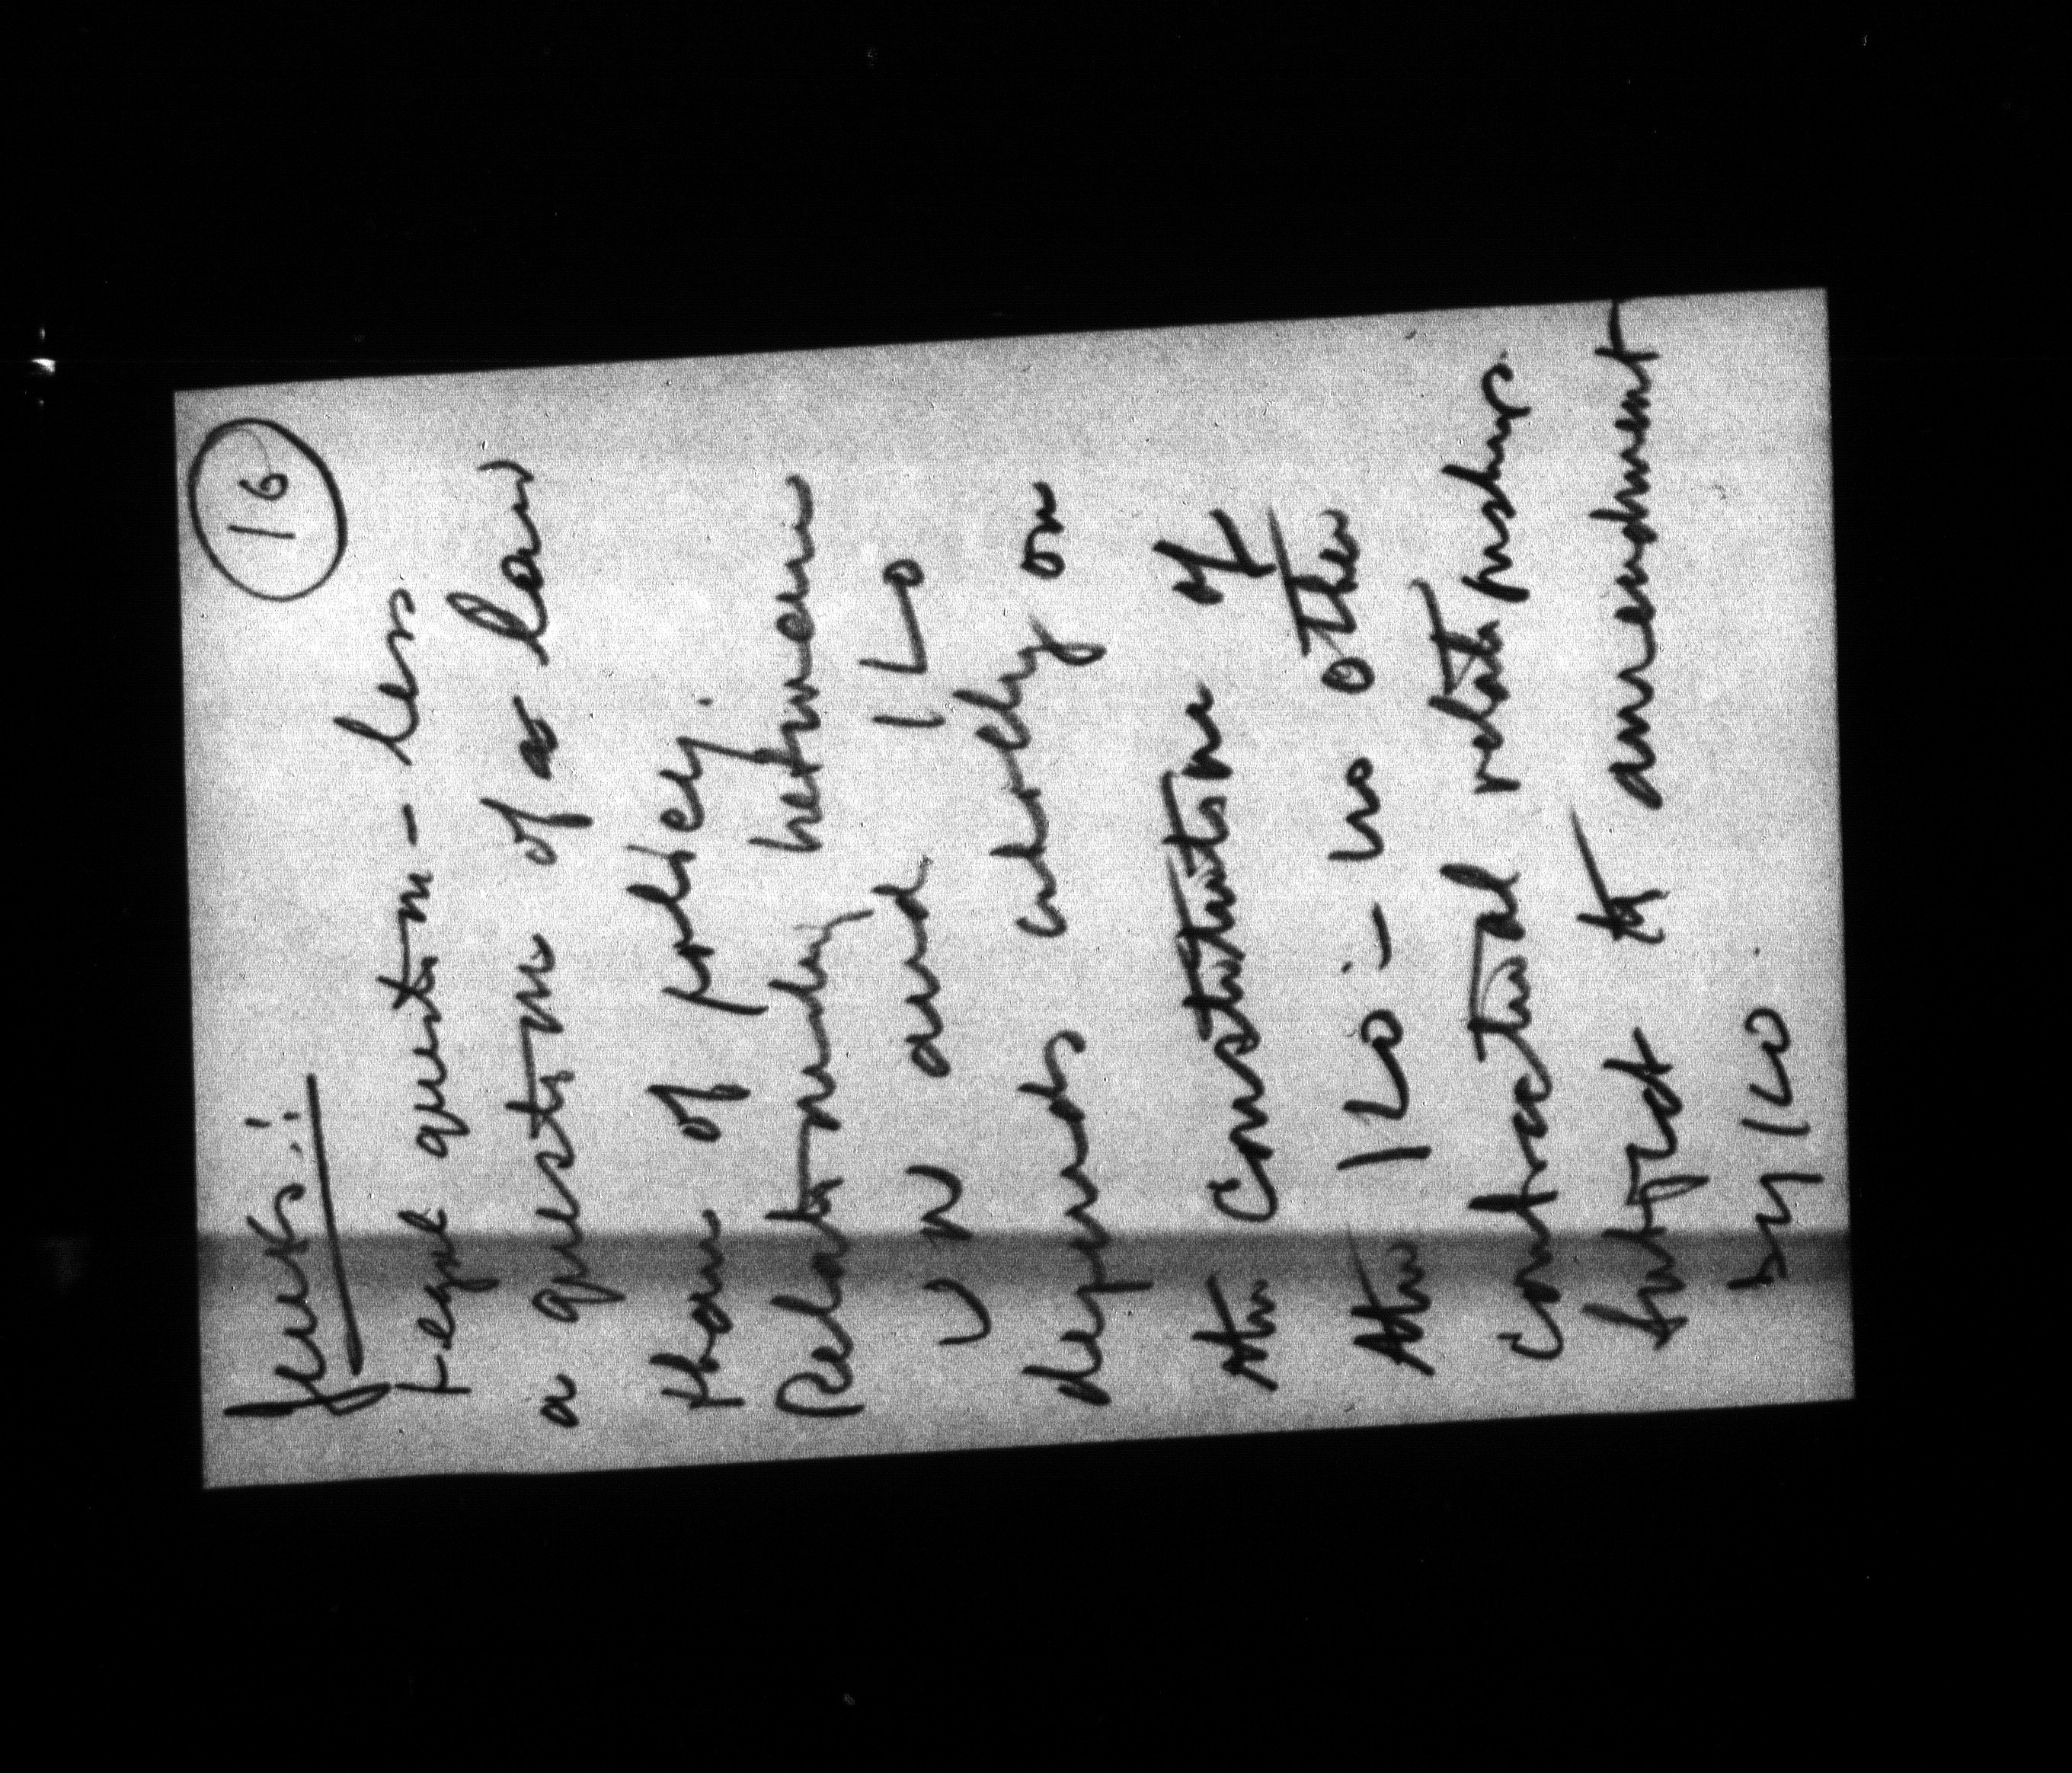 16
Jenks:
Legal question - less
a question of a law
than of policy.
Relationship between
UN and ILO
depends wholly on
the Constitution of
the ILO - no other
contractual relationships
subject to amendment
by ILO.